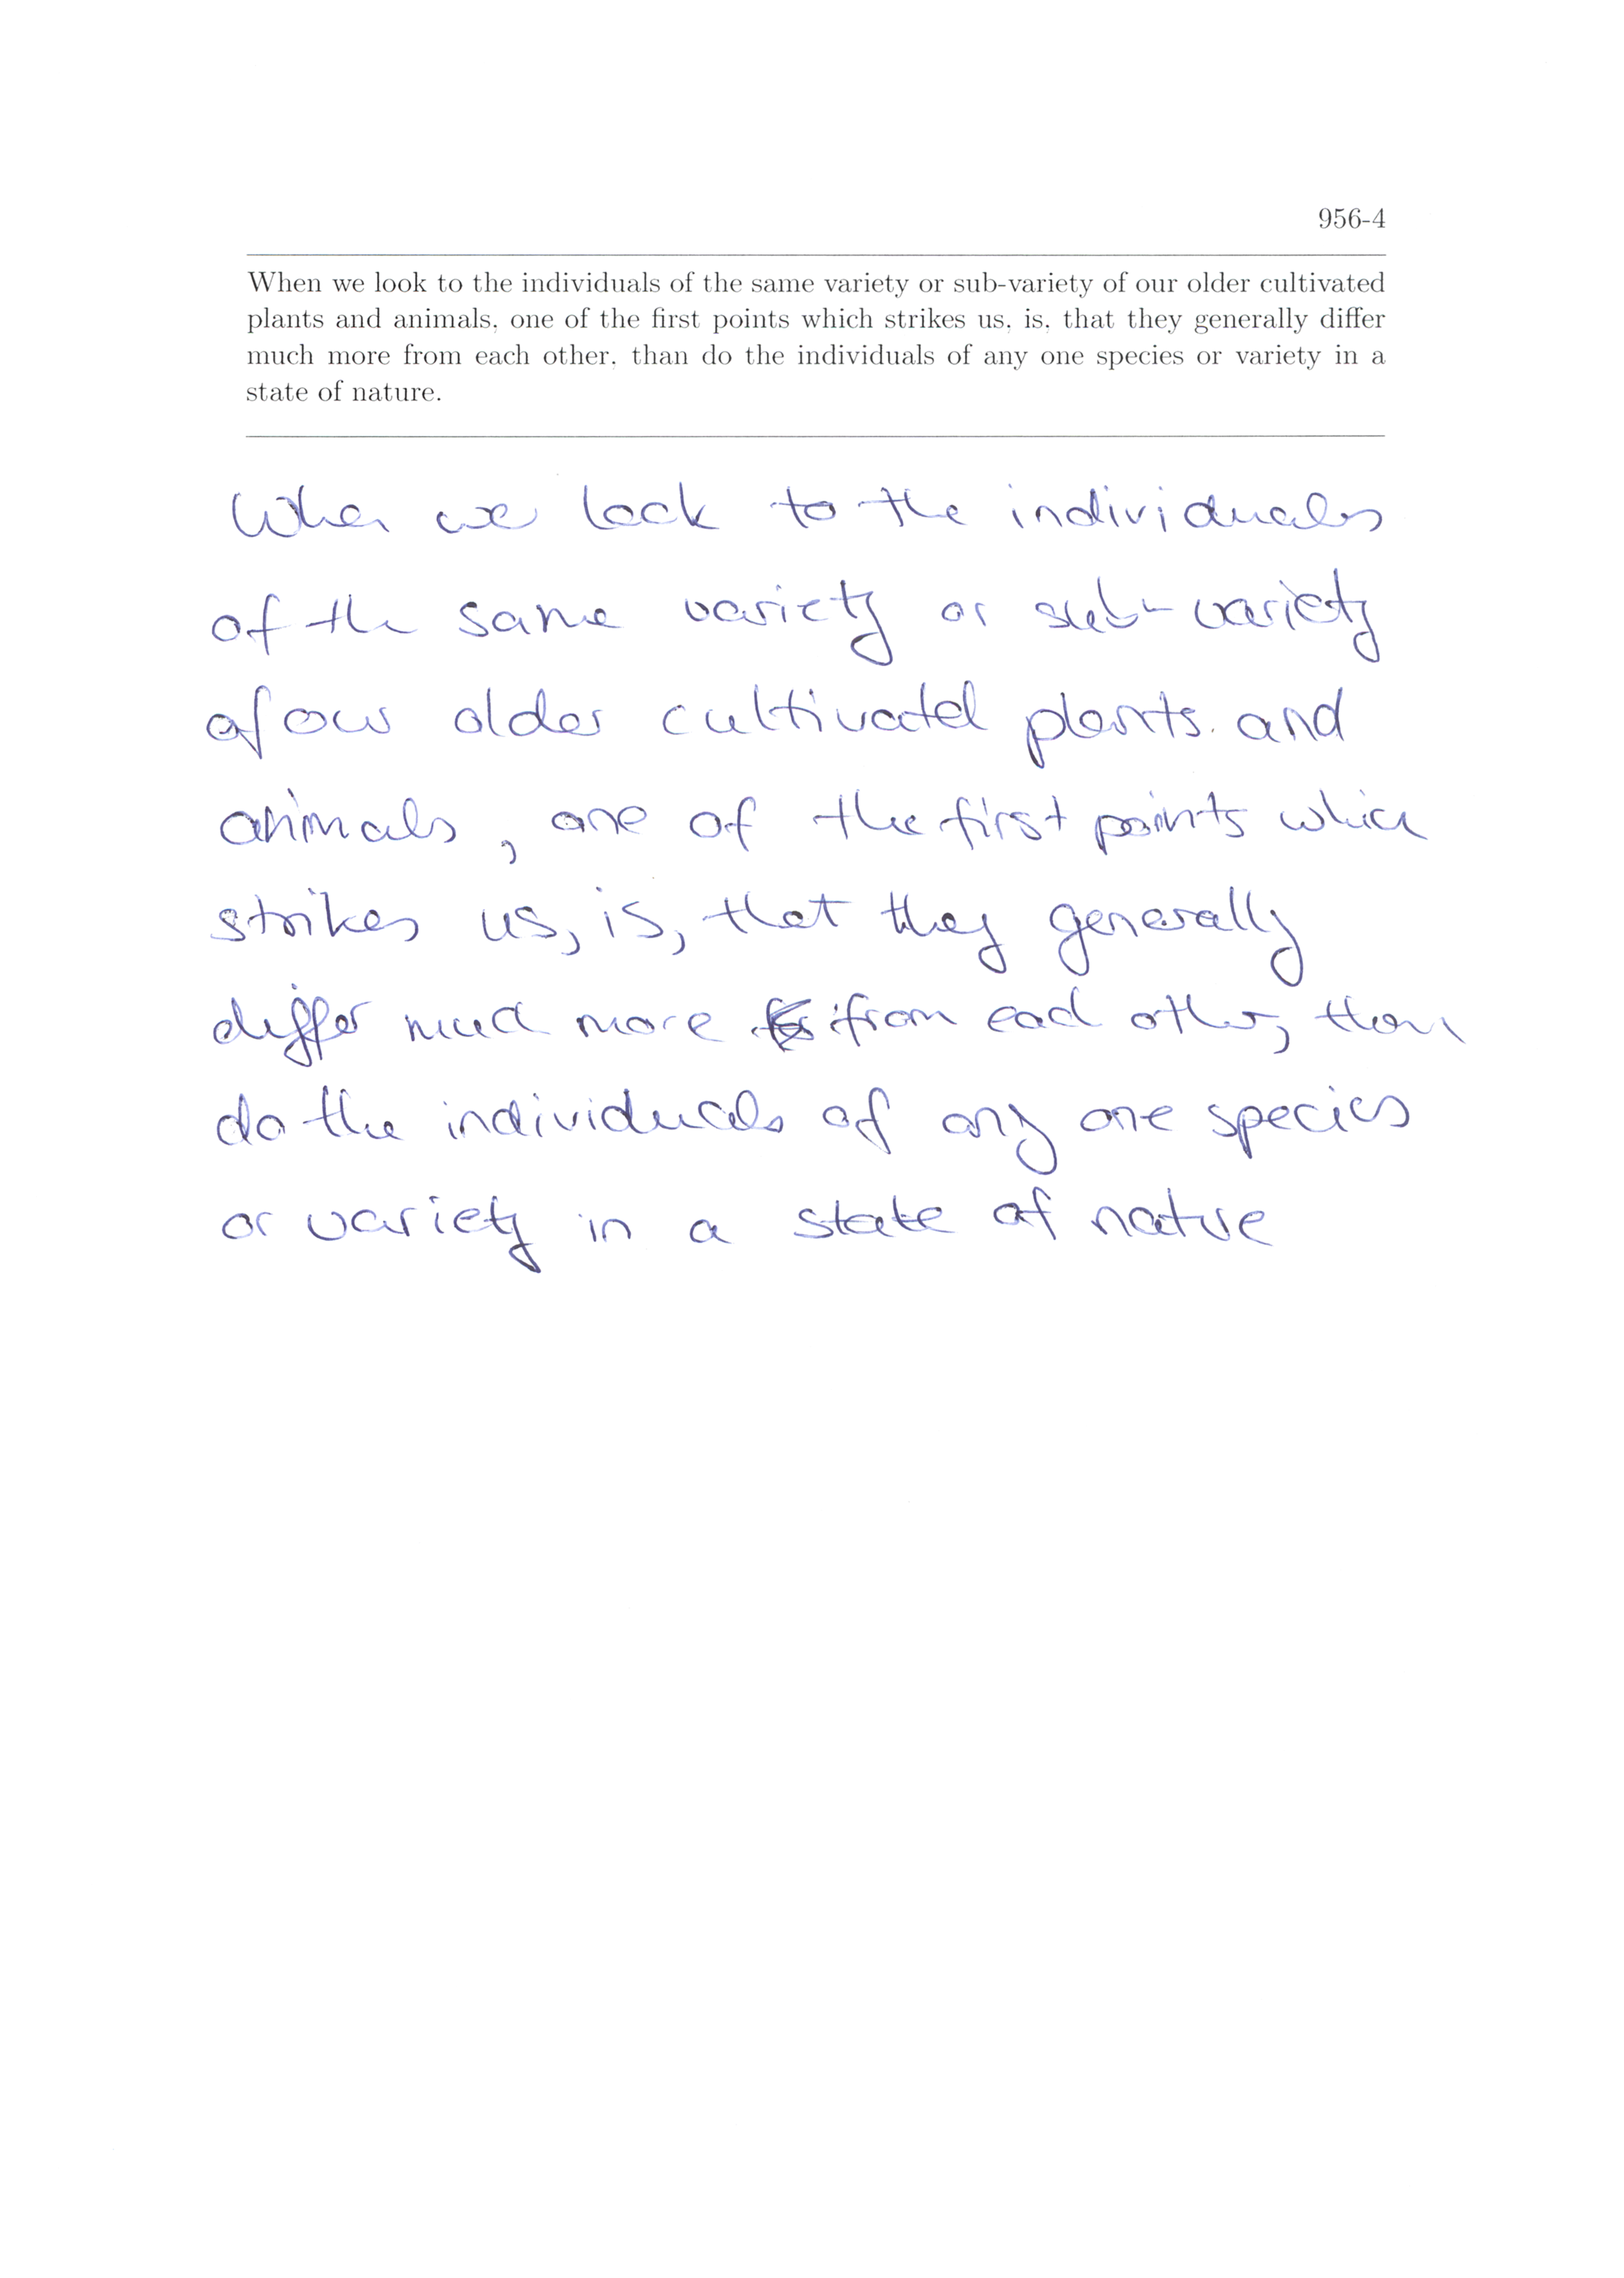 956-4
When we look to the individuals of the same variety or sub-variety of our older cultivated
plants and animals, one of the first points which strikes us, is, that they generally differ
much more from each other, than do the individuals of any one species or variety in a
state of nature.
When we look to the individuals
of the same variety or sub-variety
of our older cultivated plants and
animals, one of the first points which
strikes us, is, that they generally
differ much more from each other, than
do the individuals of any one species
or variety in a state of nature